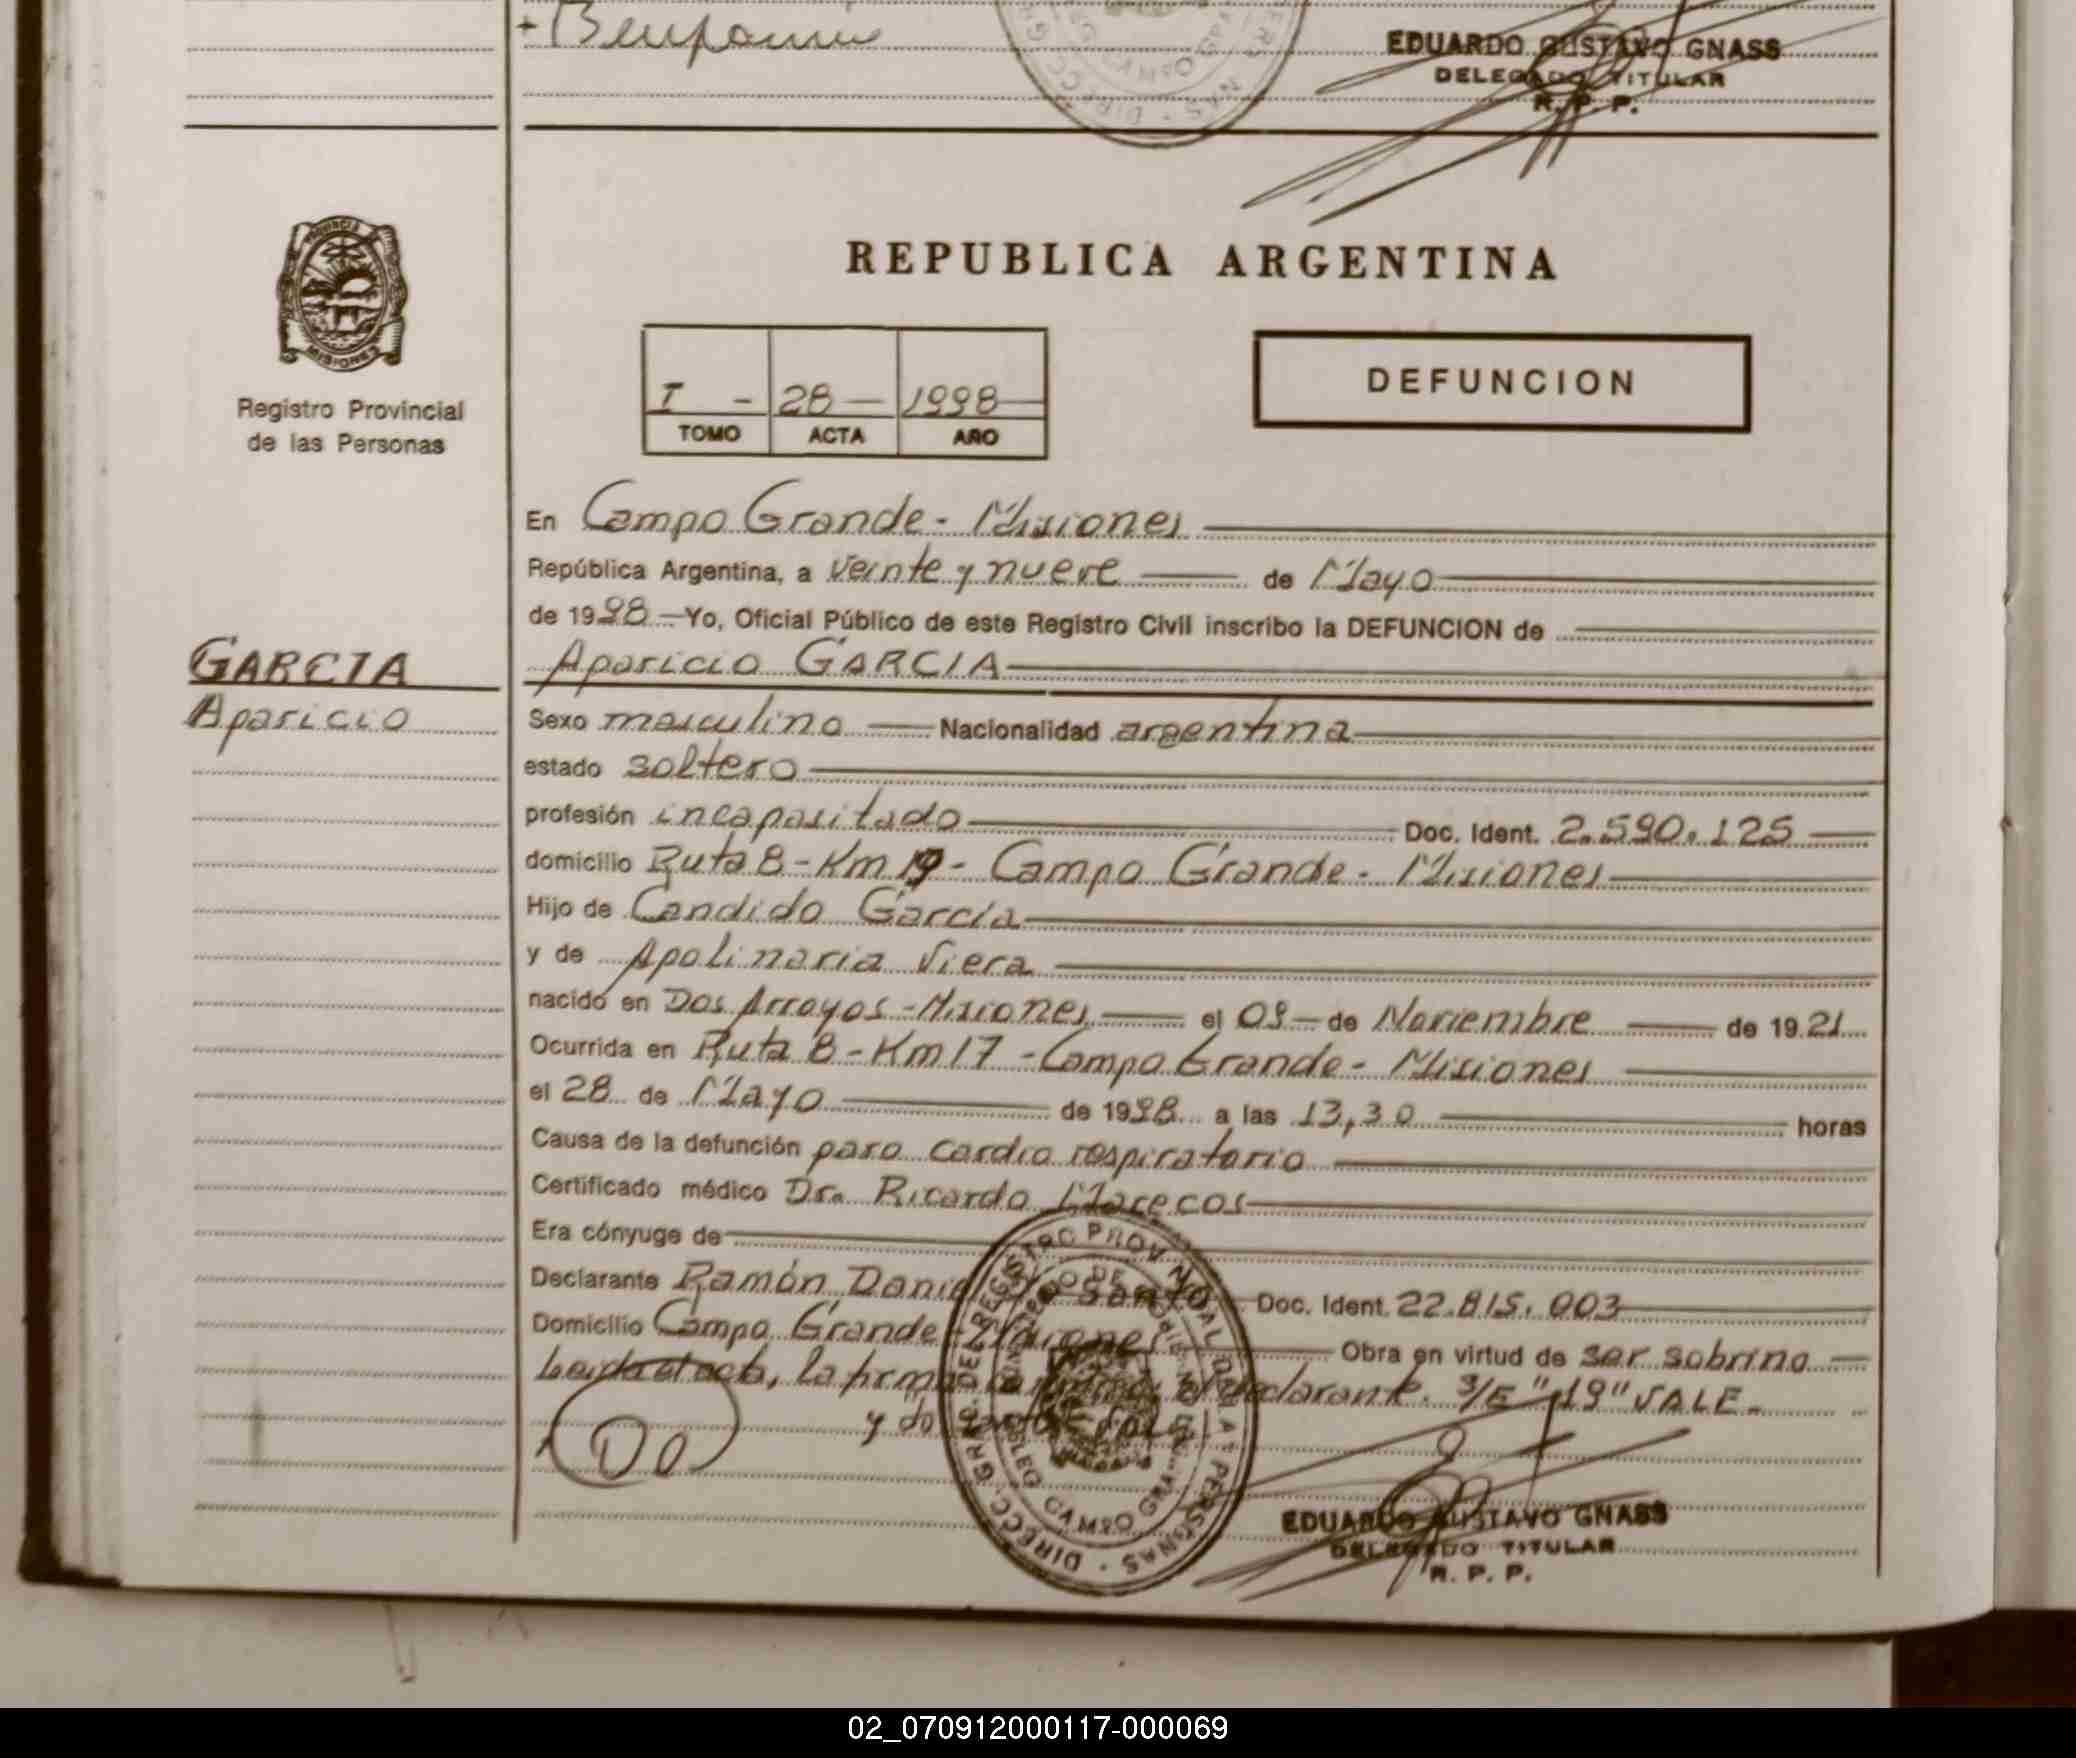 Benjamin
EDUARDO GUSTAVO GNASS
DELEGADO TITULAR
R. P. P.
PROVINCIA
MISIONES
Registro Provincial
de las Personas
REPUBLICA ARGENTINA
I - 28 - 1998
TOMO ACTA AÑO
DEFUNCION
En Campo Grande - Misiones
República Argentina, a veinte y nueve de Mayo
de 1998 - Yo, Oficial Público de este Registro Civil inscribo la DEFUNCION de
GARCIA
Aparicio
Aparicio GARCIA
Sexo masculino Nacionalidad argentina
estado soltero
profesión incapasitado Doc. Ident. 2.590.125
domicilio Ruta 8 - Km 19 - Campo Grande - Misiones
Hijo de Candido García
y de Apolinaria Viera
nacido en Dos Arroyos - Misiones el 09 de Noviembre de 1921
Ocurrida en Ruta 8 - Km 17 - Campo Grande - Misiones
el 28 de Mayo de 1998 a las 13,30 horas
Causa de la defunción paro cardio respiratorio
Certificado médico Dr. Ricardo Marecos
Era cónyuge de
Declarante Ramón Daniel Do Santo Doc. Ident. 22.815.003
Domicilio Campo Grande - Misiones Obra en virtud de ser sobrino
Leida el acta, la firma declarante. S/E "19" VALE.
EDUARDO GUSTAVO GNASS
DELEGADO TITULAR
R. P. P.
02_070912000117-000069